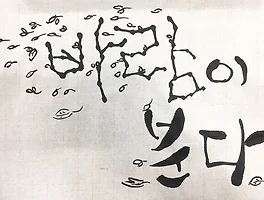 바람이
분다